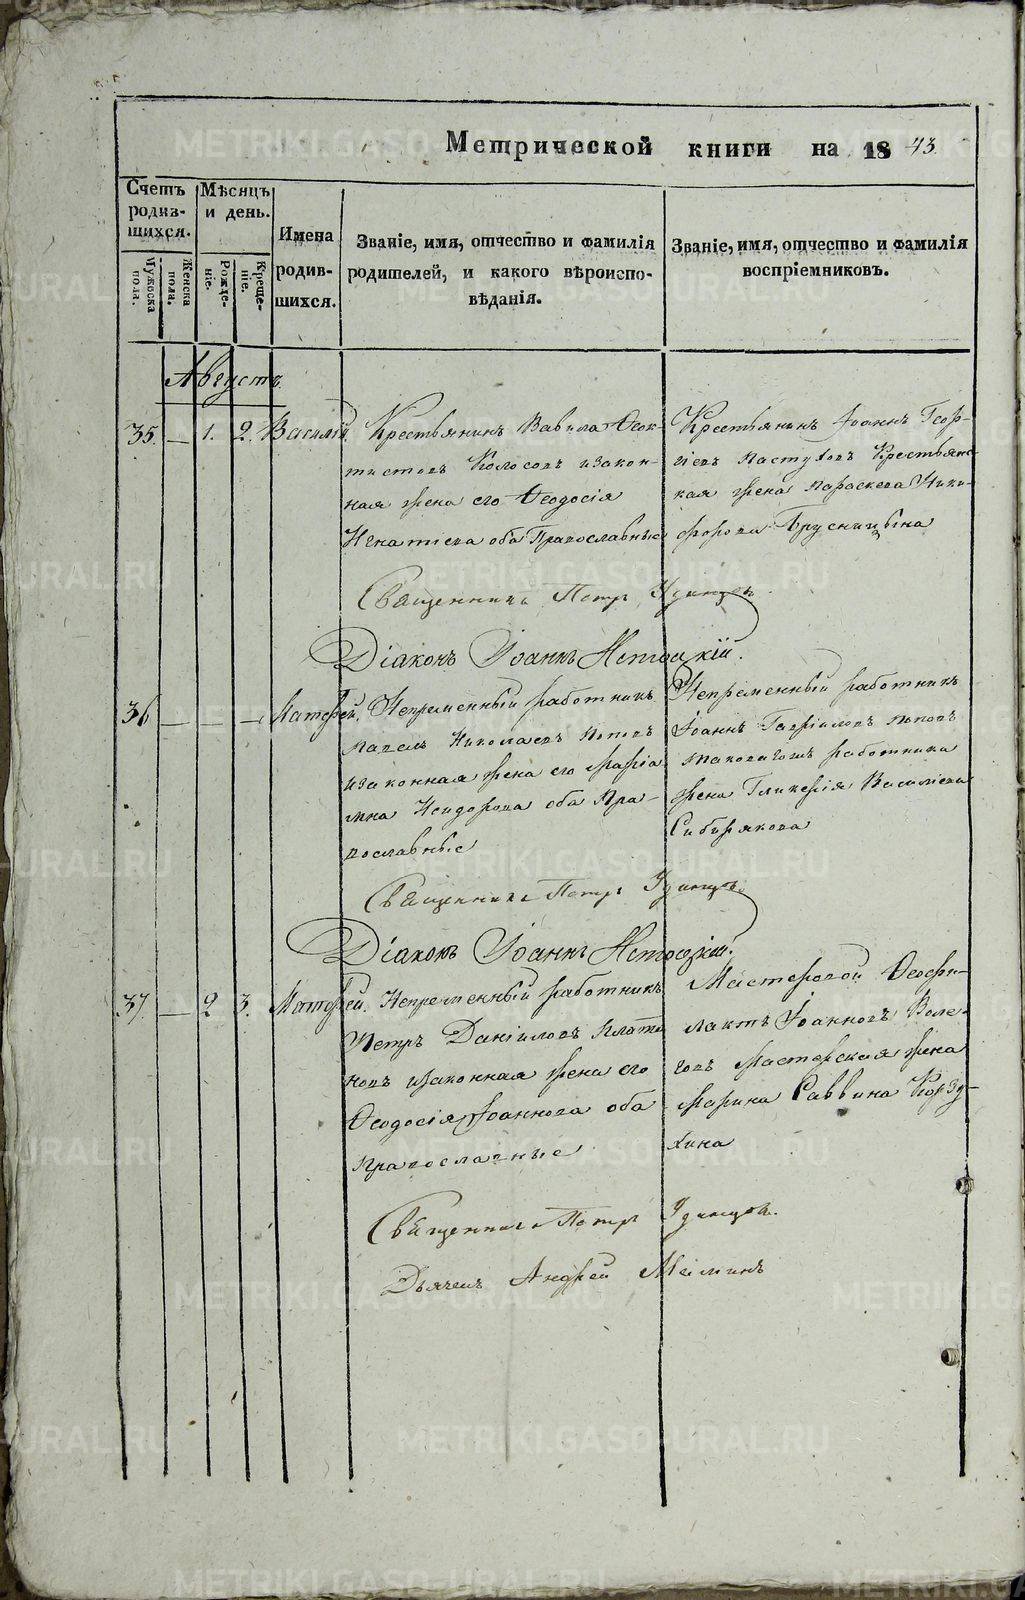 Метрической книги на 1843.
Счетъ родившихся.
Мѣсяцъ и день.
Имена родившихся.
Званіе, имя, отчество и фамилія родителей, и какого вѣроисповѣданія.
Званіе, имя, отчество и фамилія воспріемниковъ.
Мужеска пола.
Женска пола.
Рожденіе.
Крещеніе.
Августъ
35. — 1. 2. Василій.
Крестьянинъ Вавила Ѳеок-
тистовъ Колосовъ изакон-
ная жена его Ѳеодосія
Игнатиева оба Православные
Крестьянинъ Іоаннъ Геор-
гіевъ Пастуховъ Крестьянс-
кая жена Параскева Ники-
форова Брусницына
Священникъ Петръ Удинцовъ
Діаконъ Іоаннъ
36 — — — Матфей.
Непременный работникъ
Павелъ Николаевъ Поповъ
изаконная жена его Маріа
мна Исидорова оба Пра-
вославные
Непременный работникъ
Іоаннъ Гавріиловъ Поповъ
таковагожъ работника
жена Гликерія Василіева
Сибирякова
Священникъ Петръ Удинцовъ.
Діаконъ Іоаннъ
37. — 2 3. Матфей.
Непременный работникъ
Петръ Даніиловъ Плати
новъ изаконная жена его
Ѳеодосія Іоаннова оба
Православные
Мастеровой Ѳеофи-
лактъ Іоанновъ Воле-
говъ Мастерская жена
Марина Саввина Корзу-
хина
Священникъ Петръ Удинцовъ.
Дьячекъ Андрей
METRIKI.GASO-URAL.RU